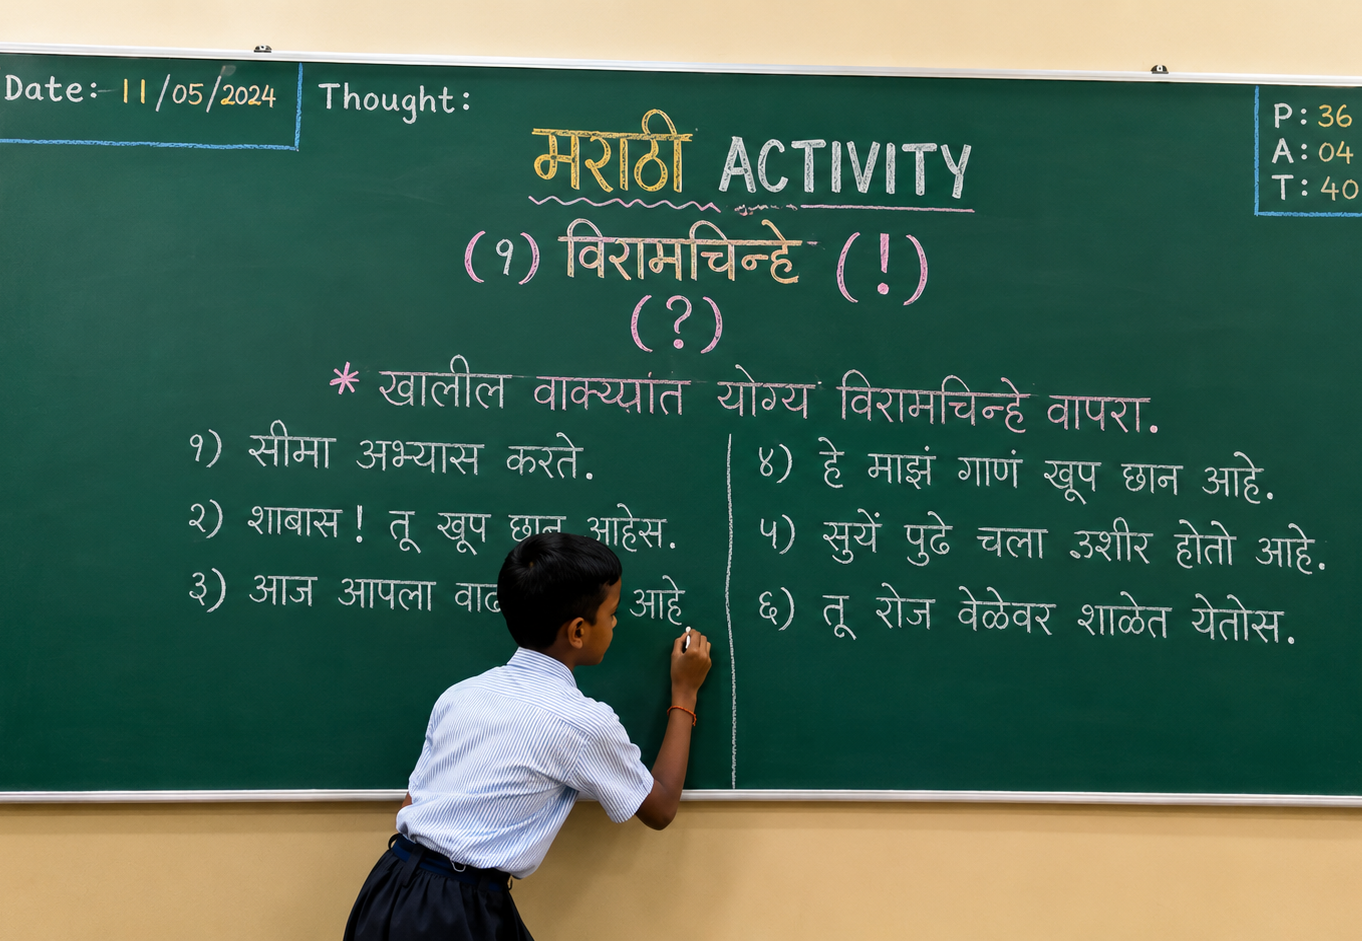 Date: 11/05/2024
Thought:
P: 36
A: 04
T: 40
मराठी ACTIVITY
(१) विरामचिन्हे (!)
(?)
* खालील वाक्य्यांत योग्य विरामचिन्हे वापरा.
१) सीमा अभ्यास करते.
२) शाबास! तू खूप छान आहेस.
३) आज आपला आहे
४) हे माझं गाणं खूप छान आहे.
५) सुर्ये पुढे चला उशीर होतो आहे.
६) तू रोज वेळेवर शाळेत येतोस.